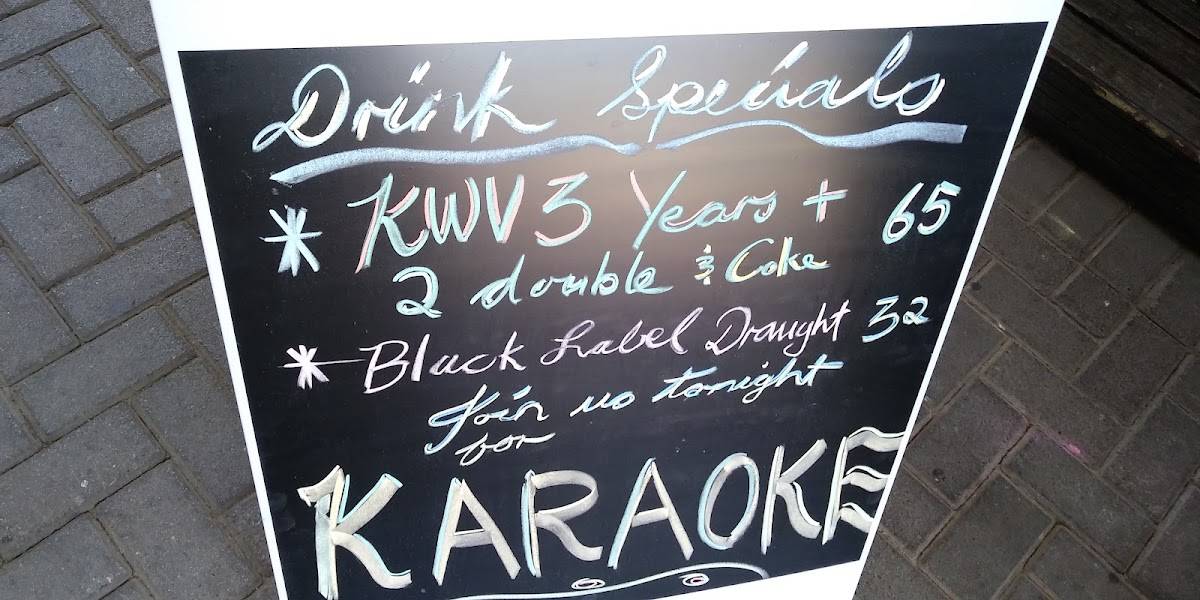 Drink Specials
* KWV 3 Years + 65
2 double & Coke
* Black Label Draught 32
Join us tonight
for
KARAOKE